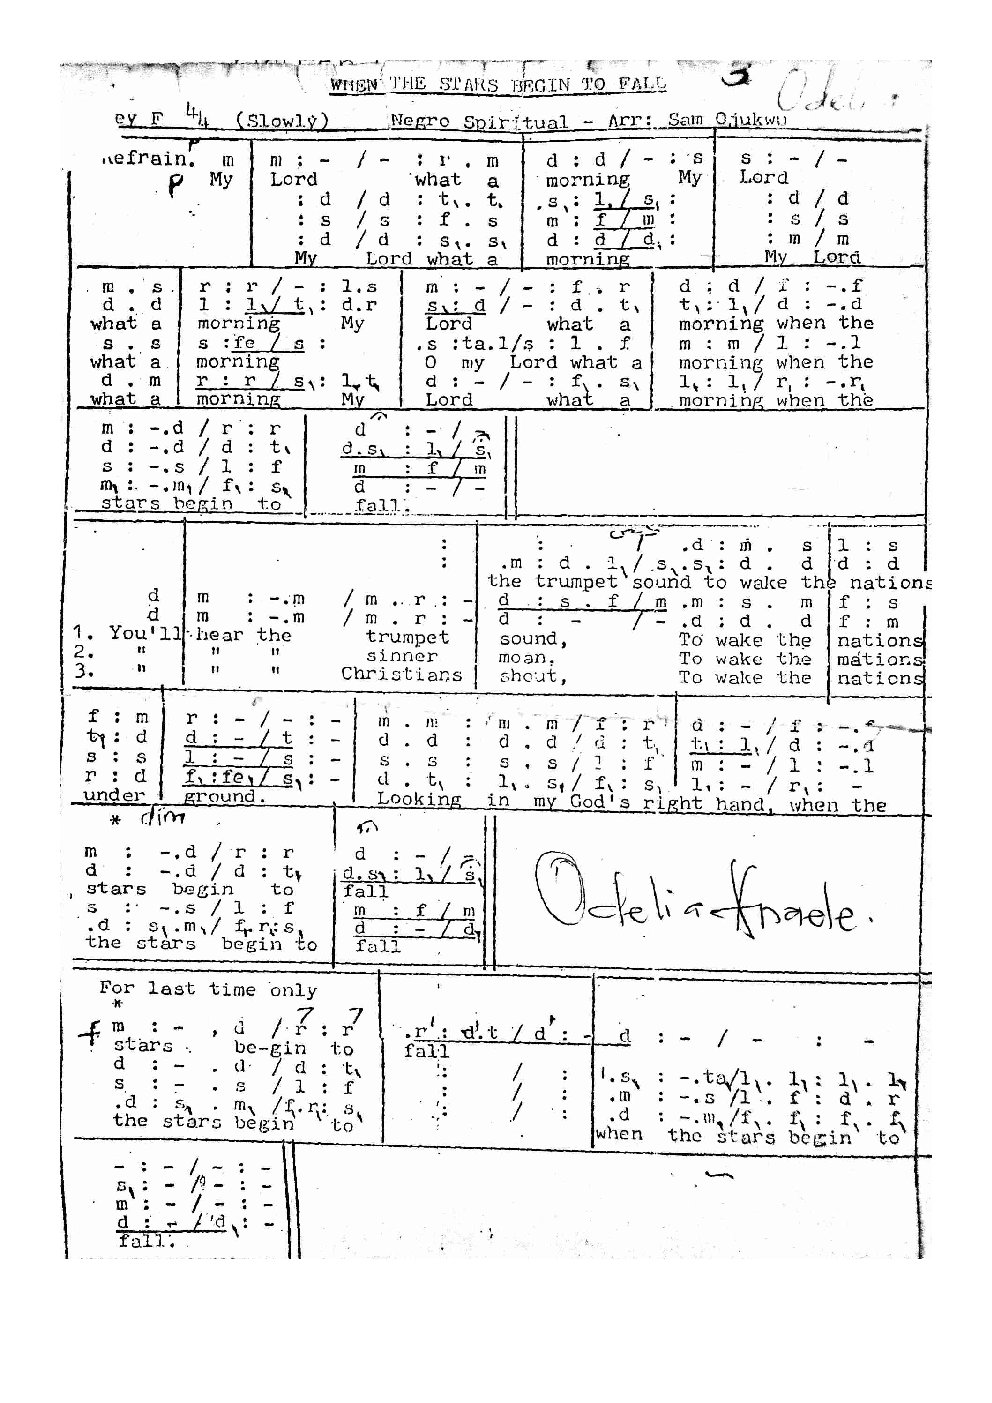 WHEN THE STARS BEGIN TO FALL 3 Odel
ey F 4/4 (Slowly) Negro Spiritual - Arr: Sam Ojukwu
Refrain. m | m : - / - : r . m | d : d / - : s | s : - / -
p My | Lord what a | morning My | Lord
: d / d : t, . t, | .s, : l, / s, : | : d / d
: s / s : f . s | m : f / m : | : s / s
: d / d : s, . s, | d : d / d, : | : m / m
My Lord what a | morning | My Lord
m . s | r : r / - : l.s | m : - / - : f . r | d : d / f : -.f
d . d | l : l, / t, : d.r | s, : d / - : d . t, | t, : l, / d : -.d
what a | morning My | Lord what a | morning when the
s . s | s :fe / s : | .s :ta.l/s : l . f | m : m / l : -.l
what a | morning | O my Lord what a | morning when the
d . m | r : r / s, : l,t, | d : - / - : f, . s, | l, : l, / r, : -.r,
what a | morning My | Lord what a | morning when the
m : -.d / r : r | d : - / -
d : -.d / d : t, | d.s, : l, / s,
s : -.s / l : f | m : f / m
m, : -.m, / f, : s, | d : - / -
stars begin to | fall.
: | : / .d : m . s | l : s
: | .m : d . l, / s, .s, : d . d | d : d
the trumpet sound to wake the nations
d | m : -.m / m . r : - | d : s . f / m .m : s . m | f : s
d | m : -.m / m . r : - | d : - / - .d : d . d | f : m
1. You'll hear the trumpet | sound, To wake the | nations
2. " " " sinner | moan, To wake the | nations
3. " " " Christians | shout, To wake the | nations
f : m | r : - / - : - | m . m : m . m / f : r | d : - / f : -.
t, : d | d : - / t : - | d . d : d . d / d : t, | t, : l, / d : -.d
s : s | l : - / s : - | s . s : s . s / l : f | m : - / l : -.l
r : d | f, :fe, / s, : - | d . t, : l, . s, / f, : s, | l, : - / r, : -
under | ground. | Looking in my God's right hand, when the
* dim
m : -.d / r : r | d : - / -
d : -.d / d : t, | d.s, : l, / s,
stars begin to | fall
s : -.s / l : f | m : f / m
.d : s, .m, / f, .r, : s, | d : - / d,
the stars begin to | fall
Odelia
For last time only
*
f m : - , d / r : r | .r' : d'.t / d' : - | d : - / - : -
stars be-gin to | fall
d : - . d / d : t, | : / : | .s, : -.ta,/l, . l, : l, . l,
s : - . s / l : f | : / : | .m : -.s /l . f : d . r
.d : s, . m, /f, .r, : s, | : / : | .d : -.m, /f, . f, : f, . f,
the stars begin to | when the stars begin to
- : - / - : -
s, : - / - : -
m : - / - : -
d : - / d, : -
fall.